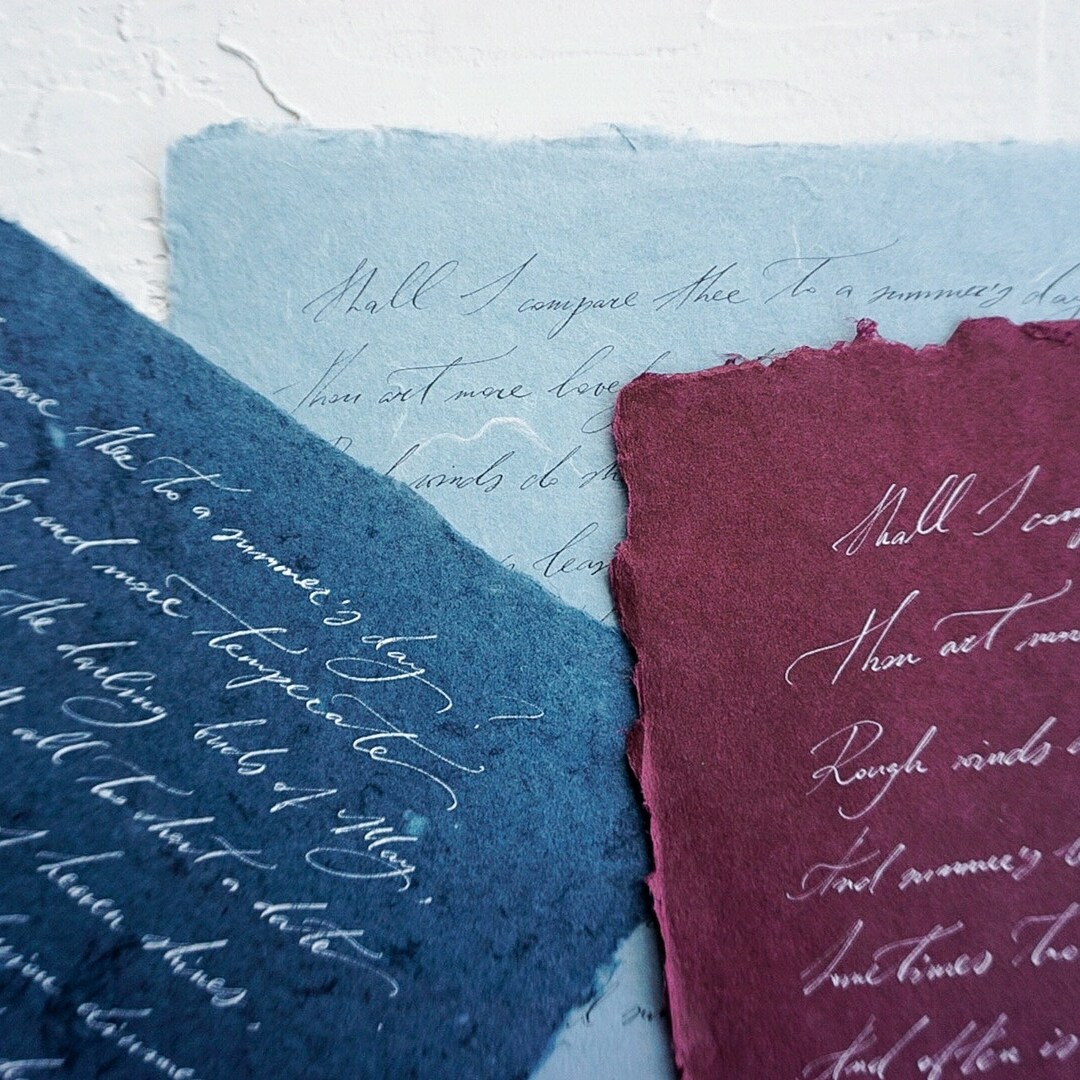 Shall I compare thee to a summer's day
Thou art more love
winds do sh
lea
pare thee to a summer's day?
ly and more temperate
the darling buds of May,
all too short a date
of heaven shines,
dimme
Shall I com
Thou art mo
Rough winds
And summer's
Sometimes too
And often is